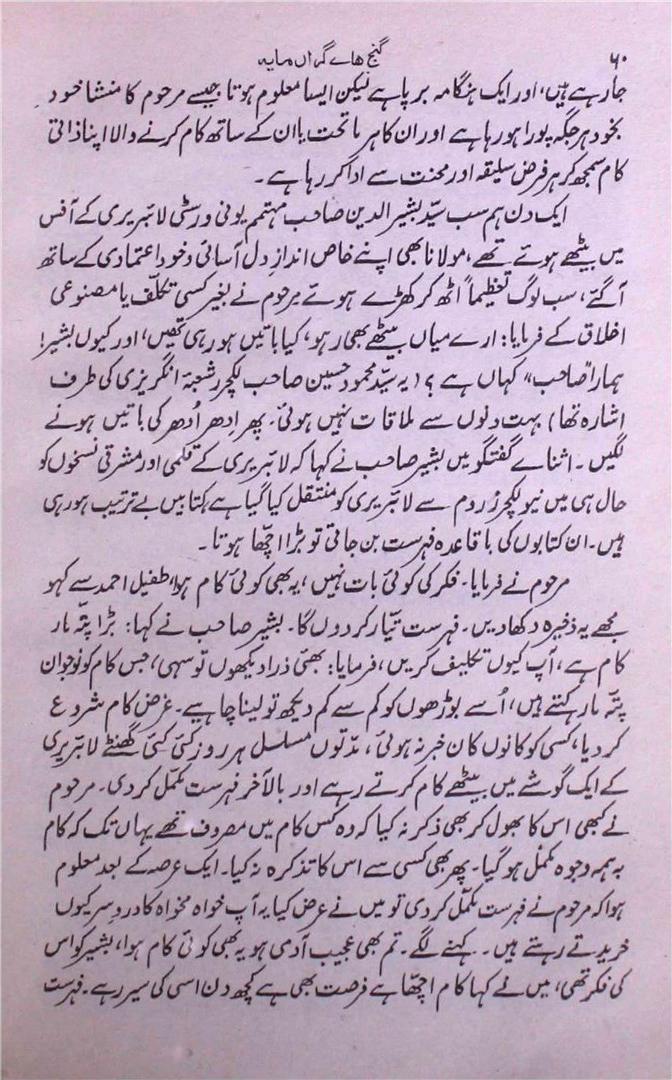 ۶۰
گنج ھاے گراں مایہ
جارہے ہیں، اور ایک ہنگامہ برپا ہے لیکن ایسا معلوم ہوتا جیسے مرحوم کا منشا خود
بخود ہر جگہ پورا ہورہا ہے اور ان کا ہر ماتحت یا ان کے ساتھ کام کرنے والا اپنا ذاتی
کام سمجھ کر ہر فرض سلیقہ اور محنت سے ادا کر رہا ہے۔
ایک دن ہم سب سیّد بشیر الدین صاحب مہتمم یونی ورسٹی لائبریری کے آفس
میں بیٹھے ہوئے تھے، مولانا بھی اپنے خاص اندازِ دل آسائی و خود اعتمادی کے ساتھ
آگئے، سب لوگ تعظیماً اٹھ کر کھڑے ہوئے مرحوم نے بغیر کسی تکلّف یا مصنوعی
اخلاق کے فرمایا: ارے میاں بیٹھے بھی رہو، کیا باتیں ہورہی تھیں، اور کیوں بشیر!
ہمارا "صاحب" کہاں ہے؟ (یہ سیّد محمود حسین صاحب لکچرر شعبۂ انگریزی کی طرف
اشارہ تھا) بہت دنوں سے ملاقات نہیں ہوئی۔ پھر اِدھر اُدھر کی باتیں ہونے
لگیں۔ اثناے گفتگو میں بشیر صاحب نے کہا کہ لائبریری کے قلمی اور مشرقی نسخوں کو
حال ہی میں نیو لکچرز روم سے لائبریری کو منتقل کیا گیا ہے کتابیں بے ترتیب ہورہی
ہیں۔ ان کتابوں کی باقاعدہ فہرست بن جاتی تو بڑا اچّھا ہوتا۔
مرحوم نے فرمایا۔ فکر کی کوئی بات نہیں، یہ بھی کوئی کام ہوا، طفیل احمد سے کہو
مجھے یہ ذخیرہ دکھادیں۔ فہرست تیّار کردوں گا۔ بشیر صاحب نے کہا: بڑا پتّہ مار
کام ہے، آپ کیوں تکلیف کریں، فرمایا: بھئی ذرا دیکھوں تو سہی، جس کام کو نوجوان
پتّہ مار کہتے ہیں، اُسے بوڑھوں کو کم سے کم دیکھ تو لینا چاہیے۔ غرض کام شروع
کردیا، کسی کو کانوں کان خبر نہ ہوئی، مدّتوں مسلسل ہر روز کئی کئی گھنٹے لائبریری
کے ایک گوشے میں بیٹھے کام کرتے رہے اور بالآخر فہرست مکمّل کردی۔ مرحوم
نے کبھی اس کا بھول کر بھی ذکر نہ کیا کہ وہ کس کام میں مصروف تھے یہاں تک کہ کام
بہ ہمہ وجوہ مکمّل ہوگیا۔ پھر بھی کسی سے اس کا تذکرہ نہ کیا۔ ایک عرصہ کے بعد معلوم
ہوا کہ مرحوم نے فہرست مکمّل کردی تو میں نے عرض کیا یہ آپ خواہ مخواہ کا دردِ سر کیوں
خریدتے رہتے ہیں۔ کہنے لگے۔ تم بھی عجیب آدمی ہو یہ بھی کوئی کام ہوا، بشیر کو اس
کی فکر تھی، میں نے کہا کام اچّھا ہے فرصت بھی ہے کچھ دن اسی کی سیر رہے۔ فہرست